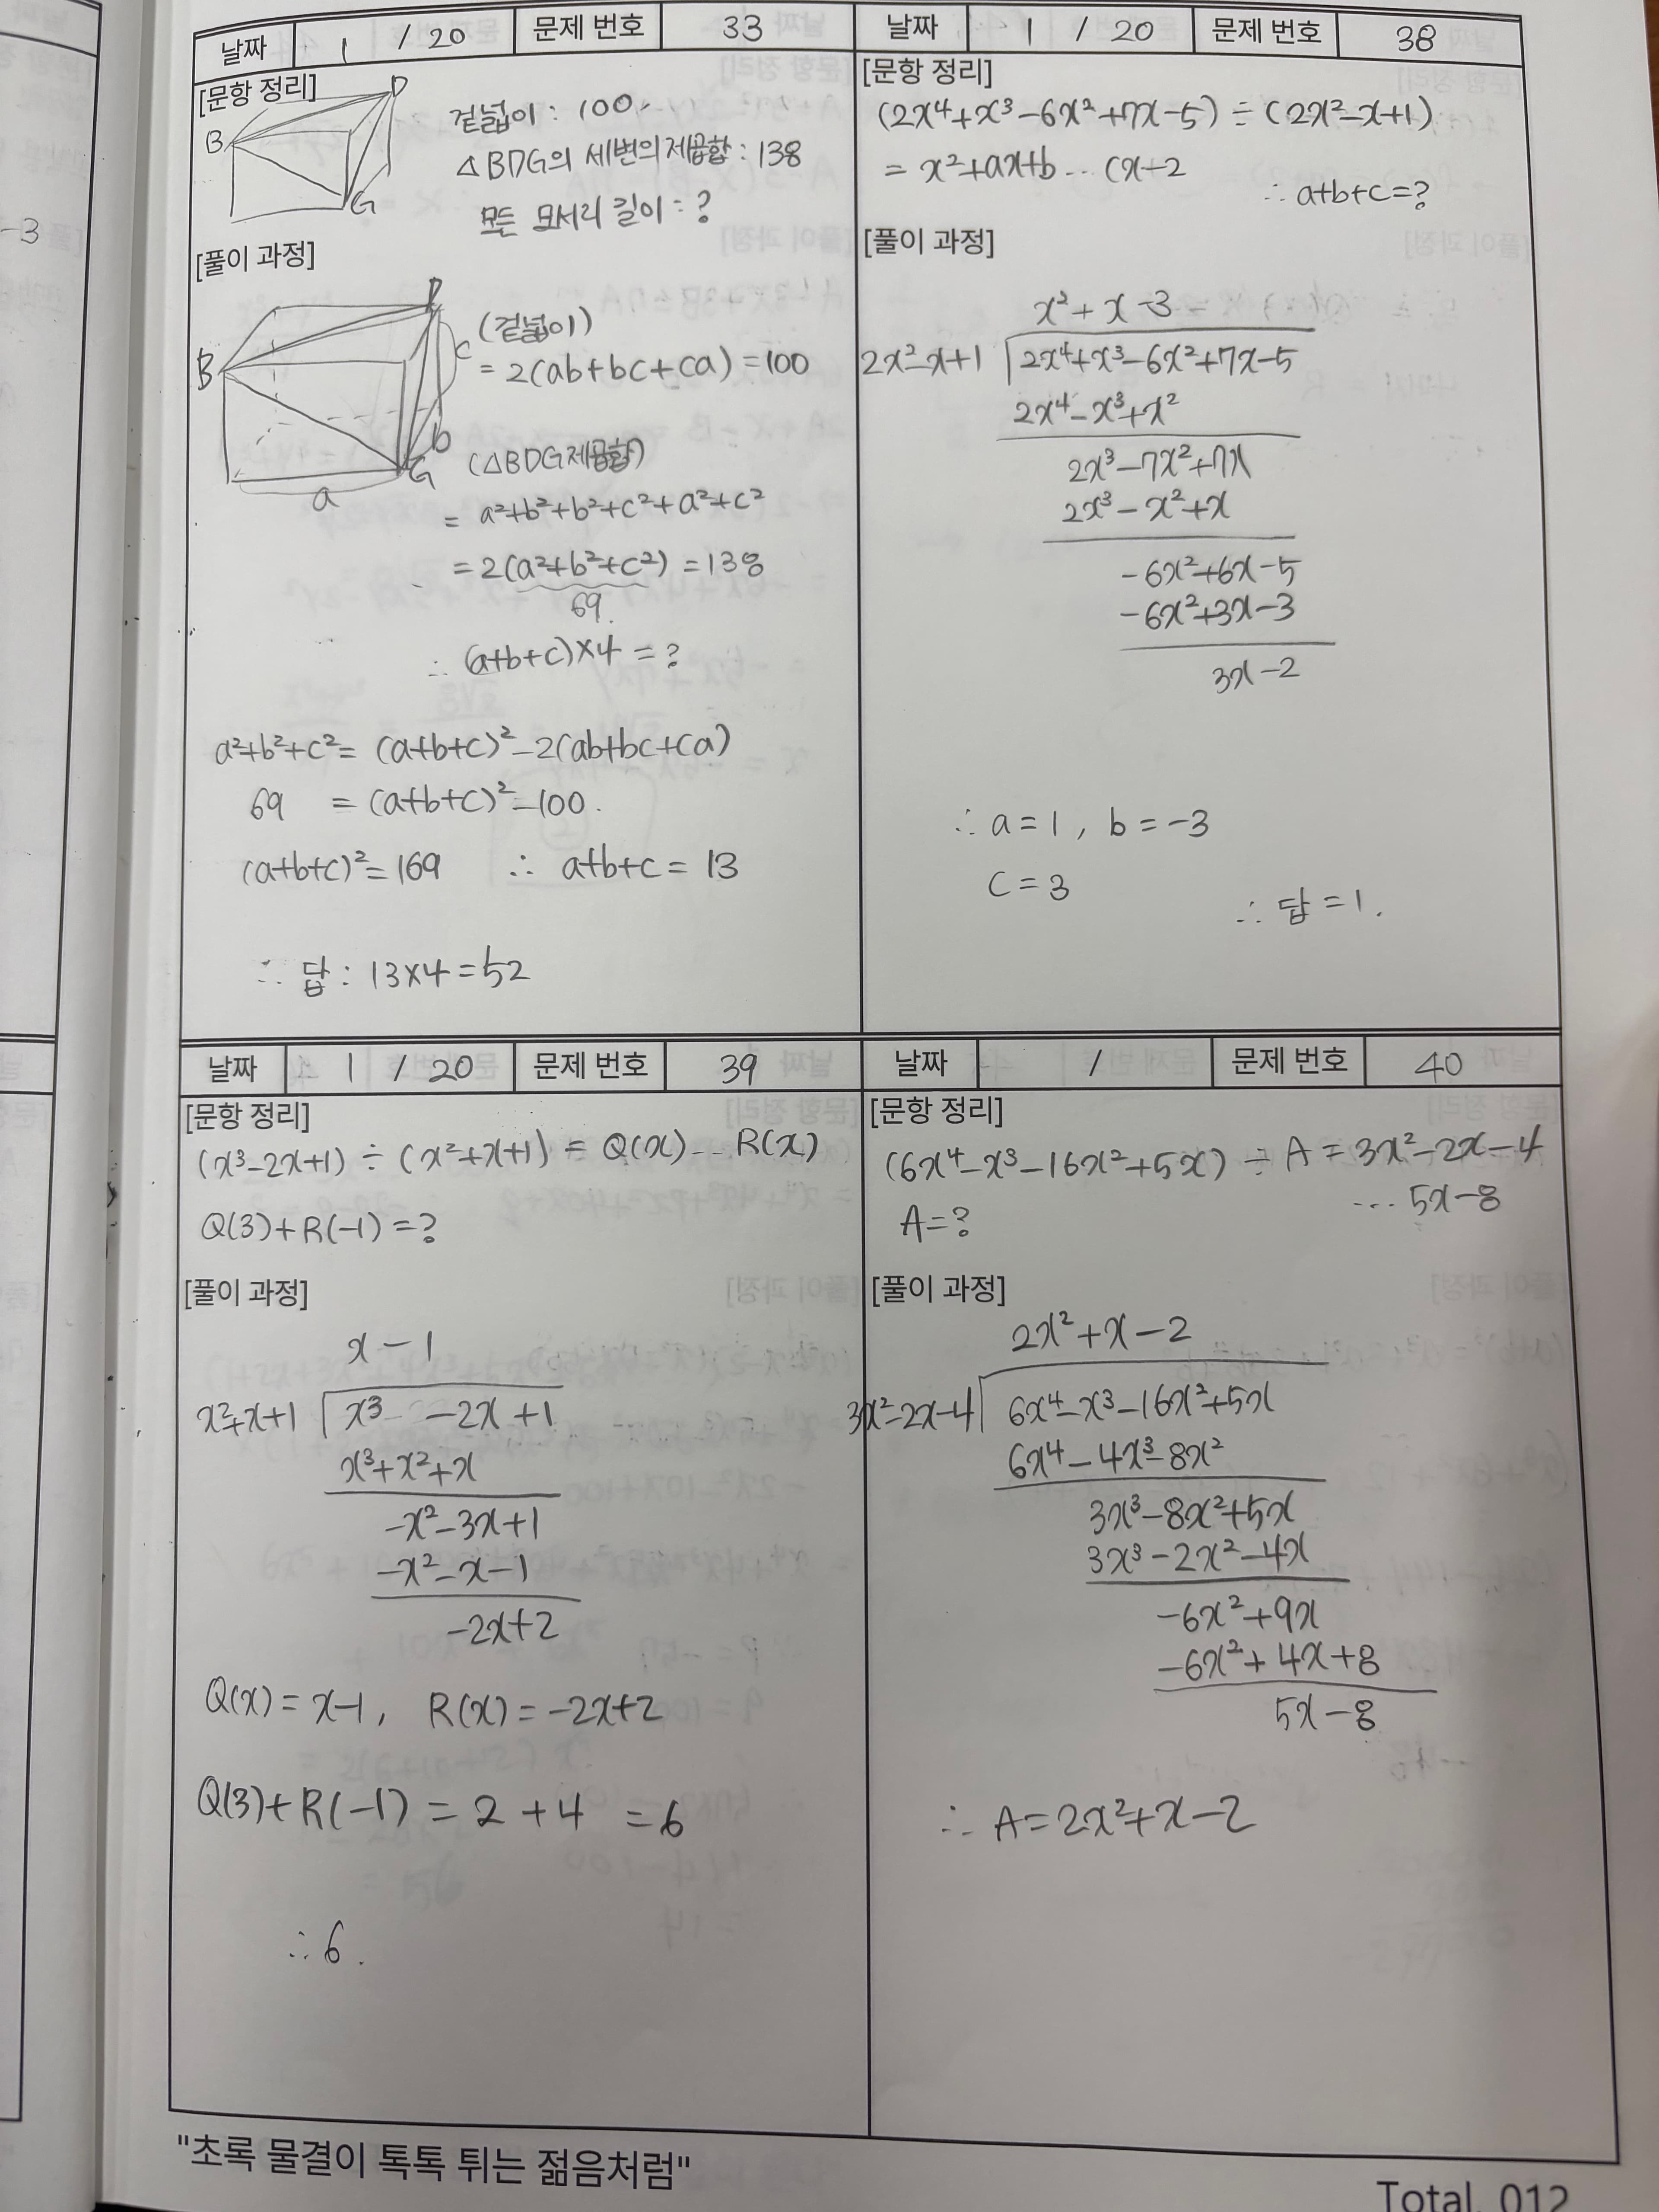 -3
날짜 1 / 20 문제 번호 33
[문항 정리]
B D G
겉넓이 : 100.
△BDG의 세변의 제곱합 : 138
모든 모서리 길이 = ?
[풀이 과정]
B D G a b c
(겉넓이)
= 2(ab+bc+ca) = 100
(△BDG제곱합)
= a²+b²+b²+c²+a²+c²
= 2(a²+b²+c²) = 138
69.
∴ (a+b+c)×4 = ?
a²+b²+c² = (a+b+c)² - 2(ab+bc+ca)
69 = (a+b+c)² - 100.
(a+b+c)² = 169 ∴ a+b+c = 13
∴ 답 : 13×4 = 52
날짜 1 / 20 문제 번호 38
[문항 정리]
(2x⁴+x³-6x²+7x-5) ÷ (2x²-x+1)
= x²+ax+b ... cx-2
∴ a+b+c = ?
[풀이 과정]
x² + x - 3
2x²-x+1 2x⁴+x³-6x²+7x-5
2x⁴-x³+x²
2x³-7x²+7x
2x³-x²+x
-6x²+6x-5
-6x²+3x-3
3x-2
∴ a = 1 , b = -3
c = 3
∴ 답 = 1.
날짜 1 / 20 문제 번호 39
[문항 정리]
(x³-2x+1) ÷ (x²+x+1) = Q(x) ... R(x)
Q(3)+R(-1) = ?
[풀이 과정]
x - 1
x²+x+1 x³ -2x+1
x³+x²+x
-x²-3x+1
-x²-x-1
-2x+2
Q(x) = x-1, R(x) = -2x+2
Q(3)+R(-1) = 2 + 4 = 6
∴ 6.
날짜 / 문제 번호 40
[문항 정리]
(6x⁴-x³-16x²+5x) ÷ A = 3x²-2x-4
... 5x-8
A = ?
[풀이 과정]
2x²+x-2
3x²-2x-4 6x⁴-x³-16x²+5x
6x⁴-4x³-8x²
3x³-8x²+5x
3x³-2x²-4x
-6x²+9x
-6x²+4x+8
5x-8
∴ A = 2x²+x-2
"초록 물결이 톡톡 튀는 젊음처럼"
Total. 012